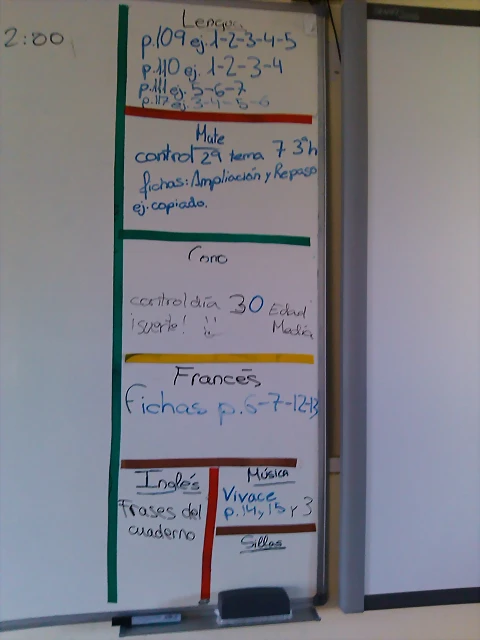 2:00
Lengua
p.109 ej. 1-2-3-4-5
p.110 ej. 1-2-3-4
p.111 ej. 5-6-7
p.117 ej. 3-4-5-6
Mate
control 29 tema 7 3ªh
fichas: Ampliación y Repaso
ej. copiado.
Cono
control día 30 Edad
¡suerte! Media
Francés
fichas p.6-7-12-13
Inglés
Frases del
cuaderno
Música
Vivace
p.14, 15 y 3
Sillas